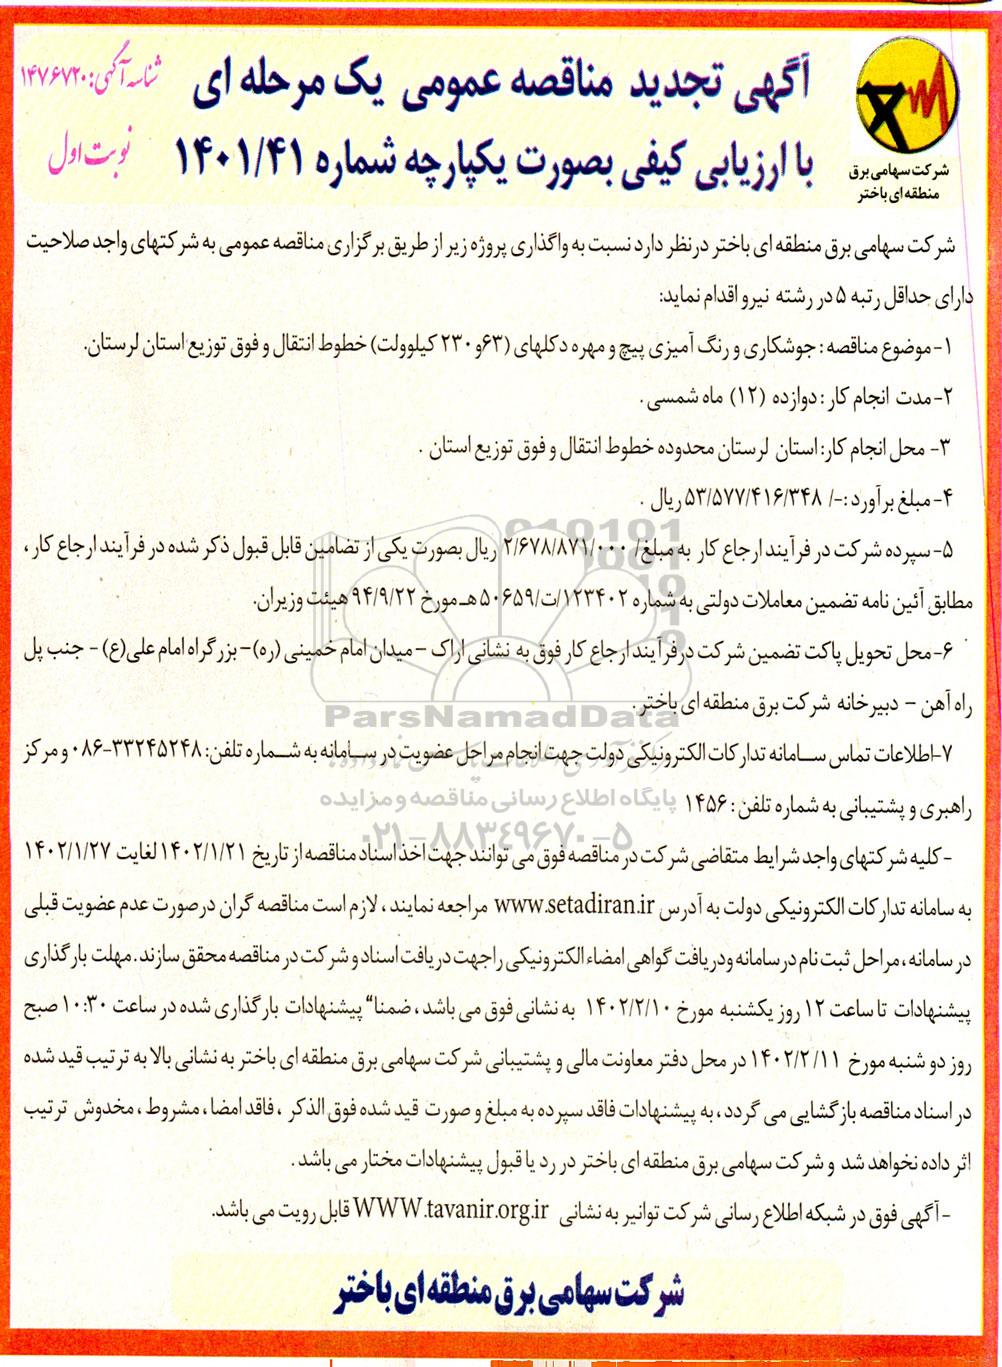 آگهی تجدید مناقصه عمومی یک مرحله ای
با ارزیابی کیفی بصورت یکپارچه شماره ۱۴۰۱/۴۱
شناسه آگهی: ۱۴۷۶۷۲۰
نوبت اول
شرکت سهامی برق
منطقه ای باختر
شرکت سهامی برق منطقه ای باختر درنظر دارد نسبت به واگذاری پروژه زیر از طریق برگزاری مناقصه عمومی به شرکتهای واجد صلاحیت
دارای حداقل رتبه ۵ در رشته نیرو اقدام نماید:
۱-موضوع مناقصه : جوشکاری و رنگ آمیزی پیچ و مهره دکلهای (۶۳و ۲۳۰ کیلوولت) خطوط انتقال و فوق توزیع استان لرستان.
۲-مدت انجام کار : دوازده (۱۲) ماه شمسی .
۳- محل انجام کار: استان لرستان محدوده خطوط انتقال و فوق توزیع استان .
۴-مبلغ برآورد :-/ ۵۳/۵۷۷/۴۱۶/۳۴۸ ریال .
۵-سپرده شرکت در فرآیند ارجاع کار به مبلغ/ ۲/۶۷۸/۸۷۱/۰۰۰ ریال بصورت یکی از تضامین قابل قبول ذکر شده در فرآیند ارجاع کار ،
مطابق آئین نامه تضمین معاملات دولتی به شماره ۱۲۳۴۰۲/ت/۵۰۶۵۹ هـ مورخ ۹۴/۹/۲۲ هیئت وزیران.
۶-محل تحویل پاکت تضمین شرکت درفرآیند ارجاع کار فوق به نشانی اراک – میدان امام خمینی (ره)– بزرگراه امام علی(ع) - جنب پل
راه آهن – دبیرخانه شرکت برق منطقه ای باختر.
۷-اطلاعات تماس سامانه تدارکات الکترونیکی دولت جهت انجام مراحل عضویت در سامانه به شماره تلفن: ۳۳۲۴۵۲۴۸-۰۸۶ و مرکز
راهبری و پشتیبانی به شماره تلفن : ۱۴۵۶
-کلیه شرکتهای واجد شرایط متقاضی شرکت در مناقصه فوق می توانند جهت اخذ اسناد مناقصه از تاریخ ۱۴۰۲/۱/۲۱ لغایت ۱۴۰۲/۱/۲۷
به سامانه تدارکات الکترونیکی دولت به آدرس www.setadiran.ir مراجعه نمایند ، لازم است مناقصه گران درصورت عدم عضویت قبلی
در سامانه ، مراحل ثبت نام درسامانه ودریافت گواهی امضاء الکترونیکی راجهت دریافت اسناد و شرکت در مناقصه محقق سازند. مهلت بارگذاری
پیشنهادات تا ساعت ۱۲ روز یکشنبه مورخ ۱۴۰۲/۲/۱۰ به نشانی فوق می باشد ، ضمنا“ پیشنهادات بارگذاری شده در ساعت ۱۰:۳۰ صبح
روز دو شنبه مورخ ۱۴۰۲/۲/۱۱ در محل دفتر معاونت مالی و پشتیبانی شرکت سهامی برق منطقه ای باختر به نشانی بالا به ترتیب قید شده
در اسناد مناقصه بازگشایی می گردد ، به پیشنهادات فاقد سپرده به مبلغ و صورت قید شده فوق الذکر ، فاقد امضا ، مشروط ، مخدوش ترتیب
اثر داده نخواهد شد و شرکت سهامی برق منطقه ای باختر در رد یا قبول پیشنهادات مختار می باشد .
-آگهی فوق در شبکه اطلاع رسانی شرکت توانیر به نشانی WWW.tavanir.org.ir قابل رویت می باشد.
شرکت سهامی برق منطقه ای باختر
ParsNamadData
پایگاه اطلاع رسانی مناقصه و مزایده
۰۲۱-۸۸۳۴۹۶۷۰-۵